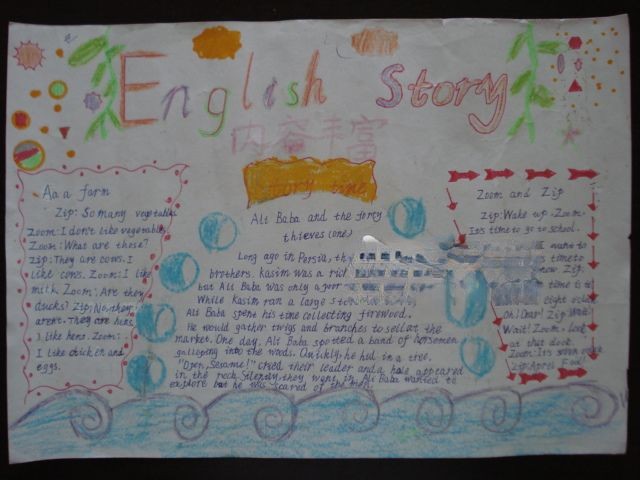 English Story
内容丰富
Story time
Aa a farm
Zip: So many vegetables
Zoom: I don't like vegetables
Zoom: What are those?
Zip: They are cows. I
like cows. Zoom: I like
milk Zoom: Are they
ducks? Zip: No, they
aren't. They are hens.
I like hens. Zoom:
I like chicken and
eggs.
Ali Baba and the forty
thieves (one)
Long ago in Persia, the
brothers. Kasim was a rich
but Ali Baba was only a poor
While Kasim ran a large
Ali Baba spent his time collecting firewood.
He would gather twigs and branches to sell at the
market. One day, Ali Baba spotted a band of horsemen
galloping into the woods. Quickly, he hid in a tree.
"Open, Sesame!" cried their leader and a hole appeared
in the rock. Silently, they went in. Ali Baba wanted to
explore but he was scared of the men.
Zoom and Zip
Zip: Wake up. Zoom.
It's time to go to school.
I want to
time to
now Zip.
time is it
eight o'clock
Oh! Dear! Zip Wait!
Wait! Zoom: Look
at that clock
Zoom: It's seven o'clock
Zip: April Fool!